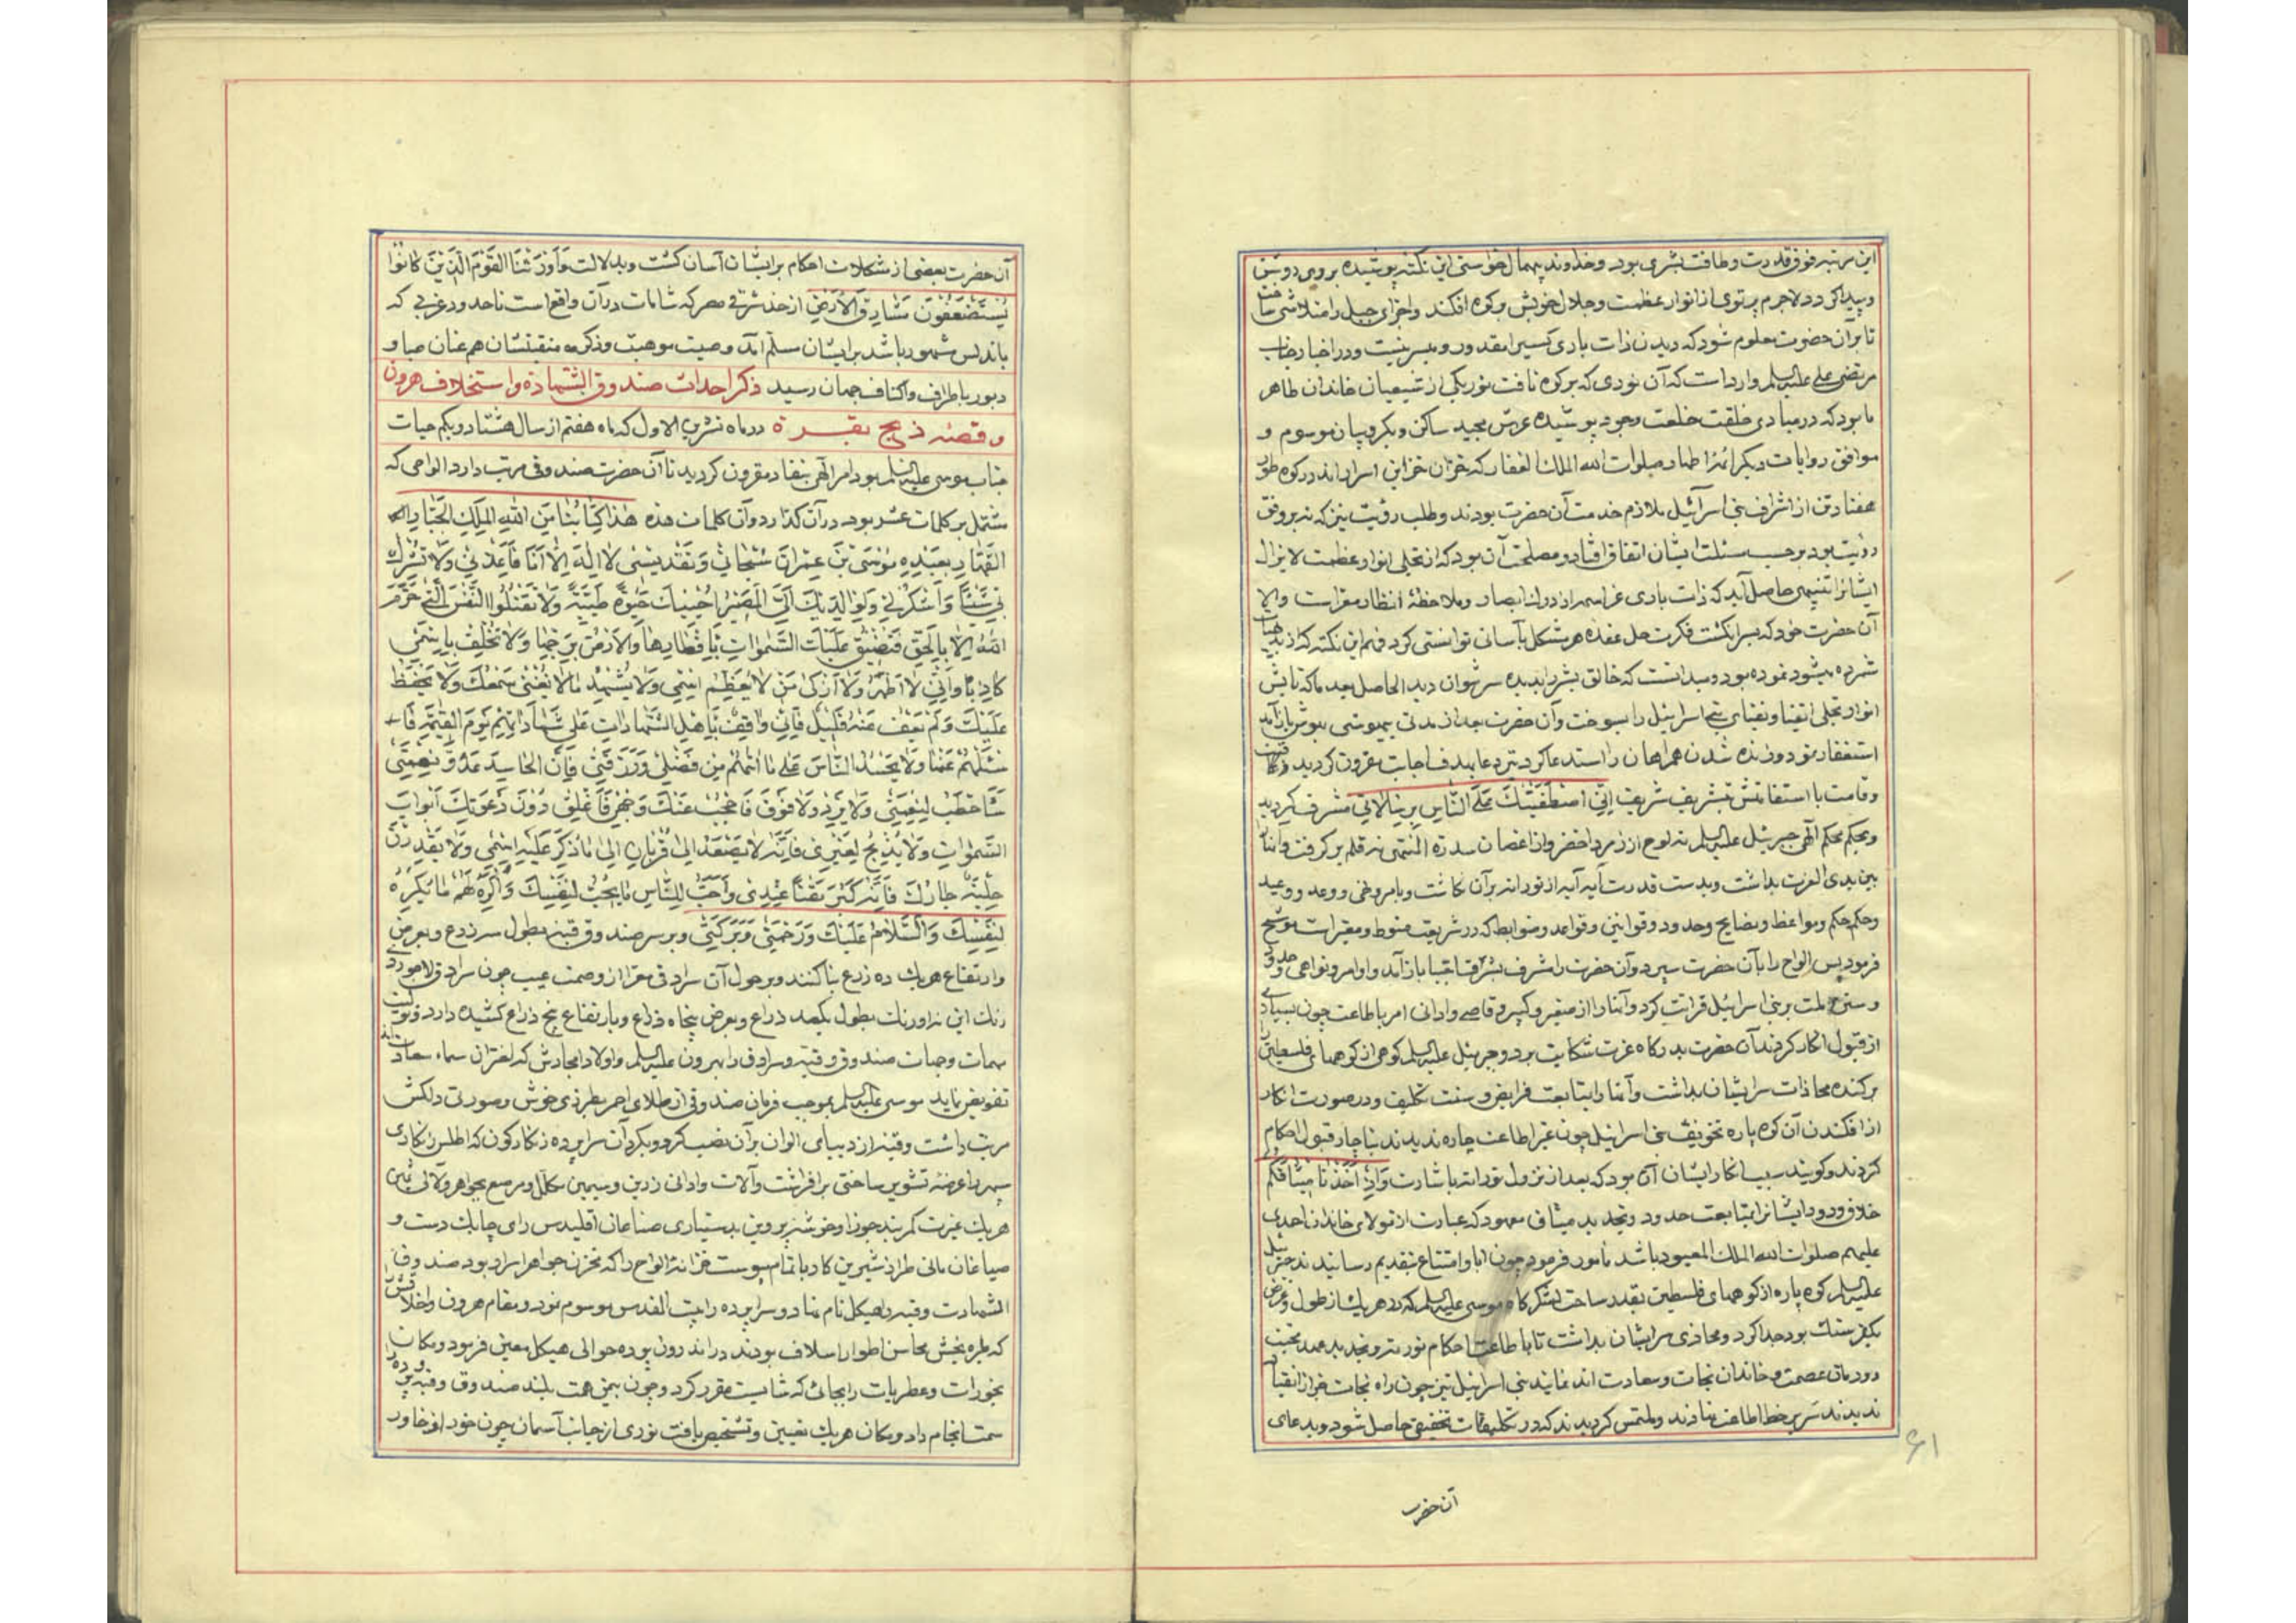 این مرتبه فوق قدرت و طاقت بشری بود و خداوند بیهمال خواستی این نکته پوشیده بروی روشن
و پیدا کردد لاجرم پرتوی از انوار عظمت و جلال خویش بر کوه افکند و اجزای جبل را متلاشی ساخت
تا بر آن حضرت معلوم شود که دیدن ذات باری کسیرا مقدور و میسر نیست و در اخبار جناب
مرتضی علی علیه السلم وارد است که آن نوری که بر کوه تافت نور یکی از شیعیان خاندان طاهر
ما بود که در مبادی خلقت خلعت وجود پوشیده عرش مجید ساکن و بکروبیان موسوم و
موافق روایات دیکر ائمه اطهار صلوات الله الملک الغفار که خزان خزاین اسرار اند در کوه طور
هفتاد تن از اشراف بنی اسرآئیل ملازم خدمت آن حضرت بودند و طلب رؤیت نیز که نه بر وفق
رؤیت بود بر حسب مسئلت ایشان اتفاق افتاد و مصلحت آن بود که از تجلی انوار عظمت لا یزال
ایشانرا تنبیهی حاصل آید که ذات باری عز اسمه از ادراک ابصار و ملاحظهٔ انظار مبراست و الا
آن حضرت خود که بسر انکشت فکرت حل عقده هر مشکل بآسانی توانستی کرد فهم این نکته که از بدیهیات
شمرده میشود نموده بود و میدانست که خالق بشر را بدیده سر نتوان دید الحاصل بعد ما که تابش
انوار تجلی اتقیا و نقبای بنی اسرائیل را بسوخت و آن حضرت بعد از مدتی بیهوشی بهوش باز آمد
استغفار نمود و زنده شدن همراهان را استدعا کرد تیر دعا بهدف اجابت مقرون کردید و قامت
و قامت با استقامتش بتشریف شریف اِنِّی اصْطَفَیْتُکَ عَلَی النَّاسِ بِرِسَالَاتِی مشرف کردید
و بحکم محکم الهی جبرئیل علیه السلم نه لوح از زمرد اخضر و از اغصان سدرة المنتهی نه قلم بر کرفت و آنها را
بین یدی العزت بداشت و بدست قدرت آیه آیه از نور انه بر آن نکاشت و بامر و نهی و وعد و وعید
و حکم حکم و مواعظ و نصایح و حدود و قوانین و قواعد و ضوابط که در شریعت منوط و معتبر است موشح
فرمود پس الواح را بآن حضرت سپرد و آن حضرت را شرف اجتبا باز آمد و اوامر و نواهی و حدود
و سنن ملت بر بنی اسرائیل قرائت کرد و آنها را از صغیر و کبیر و قاصی و ادانی امر باطاعت چون بسیاری
از قبول انکار کردند آن حضرت بدرکاه عزت شکایت برد و جبرئیل علیه السلم کوهی از کوههای فلسطین را
برکنده محاذات سر ایشان بداشت و آنها را بمتابعت فرایض و سنت تکلیف و در صورت انکار
از افکندن آن کوه پاره تخویف بنی اسرائیل چون غیر اطاعت چاره ندیدند بناچار قبول احکام
کردند و کویند سبب انکار ایشان آن بود که بعد از نزول توراته باشارت وَاِذْ اَخَذْنَا مِیثَاقَکُمْ
خلاف ودود ایشانرا بمتابعت حدود و تجدید میثاق معهود که عبارت از تولای خاندان احمدی
علیهم صلوات الله الملک المعبود باشد مامور فرمود چون ابا و امتناع بتقدیم رسانیدند جبرئیل
علیه السلم کوه پاره از کوههای فلسطین بقدر ساحت لشکرکاه موسی علیه السلم که در هر یک از طول و عرض
یکفرسنک بود جدا کرد و محاذی سر ایشان بداشت تا باطاعت احکام توریته و تجدید عهد محبت
دودمان عصمت و خاندان نجات و سعادت اندر نمایند بنی اسرائیل نیز چون راه نجات غیر از انقیاد
ندیدند سر بر خط اطاعت نهادند و ملتمس کردیدند که در تکلیفات تخفیفی حاصل شود و بدعای
آن حضرت
۶۱
آن حضرت بعضی از مشکلات احکام بر ایشان آسان کشت و بدلالت وَاَوْرَثْنَا الْقَوْمَ الَّذِینَ کَانُوا
یُسْتَضْعَفُونَ مَشَارِقَ الْاَرْضِ از حد شرقی مصر که شامات در آن واقع است تا حدود غربی که
باندلس مشهور باشد بر ایشان مسلم آمد و صیت موهبت و ذکر منقبتشان هم عنان صبا و
دبور باطراف و اکناف جهان رسید ذکر احداث صندوق الشهادة و استخلاف هرون
و قصهٔ ذبح بقره در ماه تشرین الاول که ماه هفتم از سال هشتاد و یکم حیات
جناب موسی علیه السلم بود امر الهی بنفاذ مقرون کردید تا آن حضرت صندوقی مرتب دارد الواحی که
مشتمل بر کلمات عشر بود در آن کذارد و آن کلمات هذه هٰذَا کِتَابُنَا مِنَ اللّٰهِ الْمَلِکِ الْجَبَّارِ
الْقَهَّارِ بِعَبْدِهِ مُوسَی بْنِ عِمْرَانَ سَبِّحَانِی وَتَقَدِّیسْنِی لَا اِلٰهَ اِلَّا اَنَا فَاعْبُدْنِی وَلَا تُشْرِکْ
بِی شَیْئًا وَاشْکُرْ لِی وَلِوَالِدَیْکَ اِلَیَّ الْمَصِیرُ اُحْیِیکَ حَیٰوةً طَیِّبَةً وَلَا تَقْتُلُوا النَّفْسَ الَّتِی حَرَّمَ
اللّٰهُ اِلَّا بِالْحَقِّ فَتَضِیقَ عَلَیْکَ السَّمٰوَاتُ بِاَقْطَارِهَا وَالْاَرْضُ بِرَحْبِهَا وَلَا تَحْلِفْ بِاِسْمِی
کَاذِبًا وَاِنِّی لَا اُطَهِّرُ وَلَا اُزَکِّی مَنْ لَا یُعَظِّمُ اِسْمِی وَلَا تَشْهَدْ مَا لَا یَعِی سَمْعُکَ وَلَا یَحْفَظُ
عَلَیْکَ وَلَمْ یَقِفْ عَنْهُ قَلْبُکَ فَاِنِّی وَاقِفٌ بِاَهْلِ الشَّهَادَاتِ عَلَی شَهَادَاتِهِمْ یَوْمَ الْقِیٰمَةِ
سَائِلُهُمْ عَنْهَا وَلَا یَحْسُدِ النَّاسَ عَلَی مَا اٰتَاهُمْ مِنْ فَضْلِی وَرِزْقِی فَاِنَّ الْحَاسِدَ عَدُوُّ نِعْمَتِی
سَاخِطٌ لِنِعْمَتِی وَلَا تَزْنِ وَلَا تَسْرِقْ فَاَحْجُبَ عَنْکَ وَجْهِی فَاُغْلِقَ دُونَ دَعْوَتِکَ اَبْوَابَ
السَّمٰوَاتِ وَلَا یُذْبَحْ لِغَیْرِی فَاِنَّهُ لَا یَصْعَدُ اِلَیَّ قُرْبَانٌ اِلَّا مَا ذُکِرَ عَلَیْهِ اِسْمِی وَلَا تَغْدِرَنَّ
حَلِیلَةَ جَارِکَ فَاِنَّهُ کَبُرَ مَقْتًا عِنْدِی وَاَحِبَّ لِلنَّاسِ مَا یُحِبُّ لِنَفْسِکَ وَاکْرَهْ لَهُمْ مَا تَکْرَهُ
لِنَفْسِکَ وَالسَّلَامُ عَلَیْکَ وَرَحْمَتِی وَبَرَکَتِی و بر سر صندوق قبهٔ بطول سه زرع و بعرض
و ارتفاع هر یک ده زرع بنا کنند و بر حول آن سرادقی مبرا از وصمت عیب چون سرادق لاجورد
رنک این نه اورنک بطول یکصد ذراع و بعرض پنجاه ذراع و بارتفاع پنج ذراع کشیده دارد و تولیت
مهمات و جهات صندوق و قبه و سرادق را بهرون علیه السلم و اولاد امجادش که اختران سماء سعادت اند
تفویض نماید موسی علیه السلم بموجب فرمان صندوقی از طلای احمر بطرزی خوش و صورتی دلکش
مرتب داشت و قبهٔ از دیبای الوان بر آن نصب کرد و بکرد آن سراپرده زنکارکون که اطلس زنکاری
سپهر را عرضهٔ تشویر ساختی برافراشت و آلات و ادانی زرین و سیمین مکلل و مرصع بجواهر و لآلی ثمین
هر یک غیرت کمربند جوزا و خوشهٔ پروین بدستیاری صناعان اقلیدس رای چابک دست و
صباغان مانی طراز شیرین کار باتمام پیوست خزانهٔ الواح را که مخزن جواهر اسرار بود صندوق
الشهادت و قبه را هیکل نام نهاد و سراپرده را بیت القدس موسوم نمود و مقام هرون و اخلاقش
که بهره بخش محاسن اطوار اسلاف بودند در اندرون پرده حوالی هیکل معین فرمود و مکان
بخورات و عطریات را بجائی که شایست مقرر کرد و چون بیمن همت بلند صندوق و قبه و پرده
سمت انجام داد و مکان هر یک تعیین و تشخیص یافت نوری از جانب آسمان چون خور از خاور